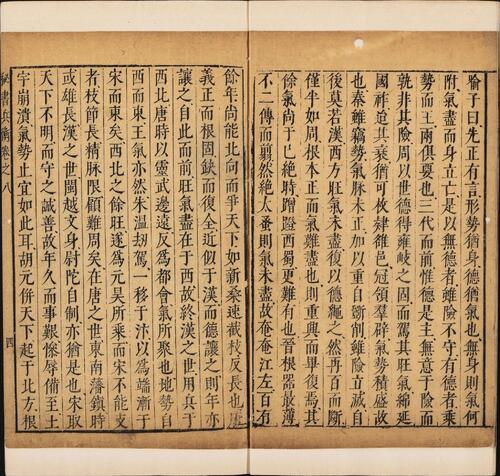 喻子曰先正有言形勢猶身德猶氣也無身則氣何
附氣盡而身立亡是以無德者雖險不守有德者乘
勢而王兩俱夏也三代而前惟德是主無意于險而
孰非其險周以世德得雍岐之固而駕其旺氣綿延
國祚迨其衰猶可枚肄雒邑冠領羣辟氣勢積盛故
也秦雖竊勢氣脉未正加以重自斵削雖險立滅自
後莫若漢西方旺氣未盡復以德繩之然再百而斷
僅半如周根本正而氣雖盡也則重興而畢復焉其
餘氣尚于已絶時蹭蹬西蜀更難有也晉根器最薄
不二傳而翦然絶太蚤則氣未盡故奄奄江左百有
餘年尚能北向而爭天下如新桑速裁枝反長也唐
義正而根固缺而復全近似于漢而德讓之則年亦
讓之自此而前旺氣盡在于西故終漢之世用兵于
西北唐時以靈武邊遠反為都會氣所聚也地勢自
西而東王氣亦然朱溫刼駕一移于汴以爲端漸于
宋而東矣西北之餘旺遂爲元昊所乘而宋不能支
者枝節長精脉限顧難周矣在唐之世東南藩鎮時
或雄長漢之世閩越文身尉陀自制亦猶是也宋取
天下不明而守之誠善故年久而事艱慘辱備至土
宇崩潰氣勢止宜如此耳胡元倂天下起于北方根
秘書兵衡卷之八
四